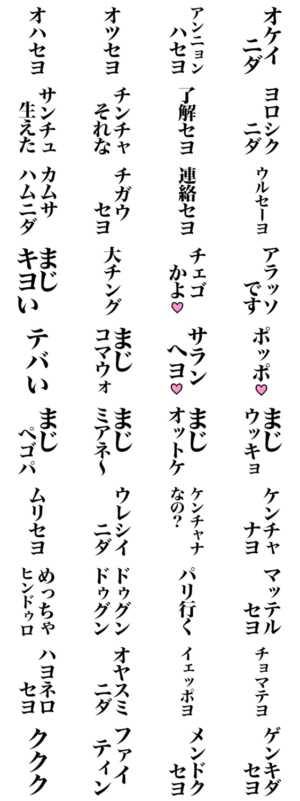 オハセヨ
オツセヨ
アンニョン
ハセヨ
オケイ
ニダ
サンチュ
生えた
チンチャ
それな
了解セヨ
ヨロシク
ニダ
カムサ
ハムニダ
チガウ
セヨ
連絡セヨ
ウルセーヨ
まじ
キヨい
大チング
チェゴ
かよ
アラッソ
です
テバい
まじ
コマウォ
サラン
ヘヨ
ポッポ
まじ
ペゴパ
まじ
ミアネ〜
まじ
オットケ
まじ
ウッキョ
ムリセヨ
ウレシイ
ニダ
ケンチャナ
なの?
ケンチャ
ナヨ
めっちゃ
ヒンドゥロ
ドゥグン
ドゥグン
パリ行く
マッテル
セヨ
ハヨネロ
セヨ
オヤスミ
ニダ
イェッポヨ
チョマテヨ
ククク
ファイ
ティン
メンドク
セヨ
ゲンキダ
セヨ